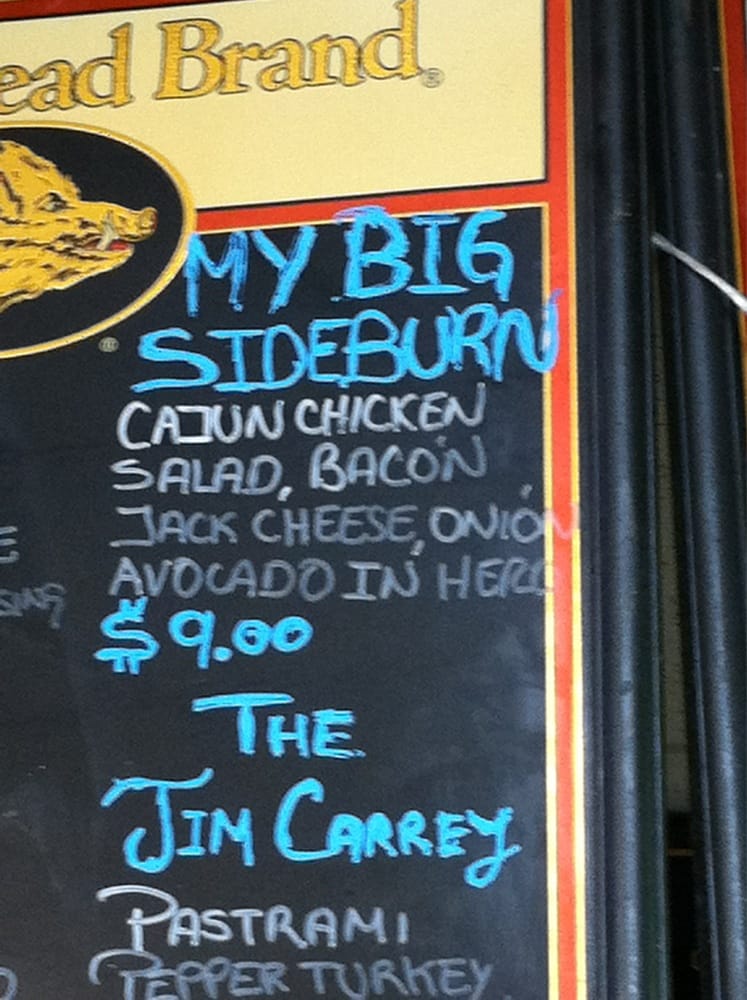 ead Brand®
®
MY BIG
SIDEBURN
CAJUN CHICKEN
SALAD, BACON,
JACK CHEESE, ONION
AVOCADO IN HERO
$9.00
THE
JIM CARREY
PASTRAMI
PEPPER TURKEY